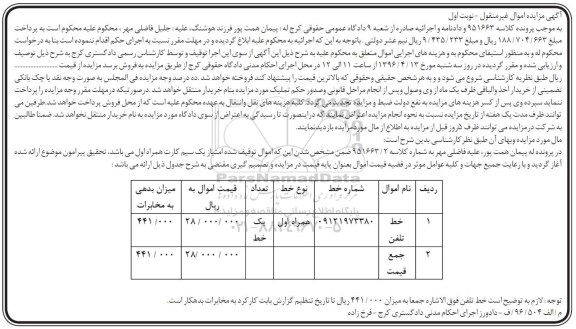 آگهی مزایده اموال غیرمنقول - نوبت اول
به موجب پرونده کلاسه ۹۵۱۶۶۳ و دادنامه و اجرائیه صادره از شعبه ۹ دادگاه عمومی حقوقی کرج له: پیمان همت پور فرزند هوشنگ، علیه: جلیل فاضلی مهر، محکوم علیه محکوم است به پرداخت
مبلغ ۱۸۸/۷۰۴/۶۶۳ ریال و مبلغ ۹/۴۳۵/۲۳۳ ریال نیم عشر دولتی. باتوجه به این که اجرائیه به محکوم علیه ابلاغ گردیده و در مهلت مقرر نسبت به اجرای حکم اقدام ننموده است بنا به درخواست
محکوم له و به منظور استیفای محکوم به و هزینه های اجرایی اموال متعلق به محکوم علیه به شرح ذیل این آگهی از سوی این اجرا توقیف و توسط کارشناس رسمی دادگستری کرج به شرح ذیل توصیف
و ارزیابی شده و مقرر گردیده در روز سه شنبه مورخ ۱۳۹۶/۴/۱۳ از ساعت ۱۱ الی ۱۲ در محل اجرای احکام مدنی دادگاه حقوقی کرج از طریق مزایده به فروش برسد مزایده از قیمت ....................
ریال طبق نظریه کارشناسی شروع می شود و به هرشخص حقیقی وحقوقی که بالاترین قیمت را پیشنهاد کند فروخته خواهد شد. ده درصد وجه مزایده فی المجلس به صورت وجه نقد یا چک بانکی
تضمینی از خریدار اخذ و الباقی ظرف یک ماه از وی وصول و پس از انجام مراحل قانونی و صدور حکم تملیک مورد مزایده بنام خریدار منتقل خواهد شد. درصورتیکه در مهلت مقرر وجه مزایده را پرداخت
ننماید سپرده وی پس از کسر هزینه های مزایده به نفع دولت ضبط و مزایده تجدید می گردد. کلیه هزینه های نقل وانتقال به عهده محکوم علیه است که از محل فروش پرداخت خواهد شد. طرفین می
توانند ظرف مدت یک هفته از تاریخ مزایده نسبت به نحوه انجام مزایده اعتراض نمایند که دراینصورت تا رسیدگی به اعتراض از سوی دادگاه مورد مزایده به نام خریدار منتقل نخواهد شد. ضمنا طالبین
به شرکت در مزایده می توانند ظرف ۵ روز قبل از مزایده به اطلاع از مال مورد مزایده بازدید نمایند.
مال مورد مزایده وبهای آن طبق نظر کارشناسی بدین شرح است:
در پرونده له پیمان همت پور، علیه فاضلی مهر به شماره کلاسه ۹۵۱۶۶۳/۲ ضمن مشخص شدن این که اموال توقیف شده امتیاز یک سیم کارت همراه اول می باشد، تحقیق پیرامون موضوع ارائه شده
آغاز گردید و با رعایت جمیع جهات و کلیه عوامل موثر در قضیه قیمت اموال بعنوان پایه قیمت در مزایده و تصمیم گیری مقتضی به شرح جدول ذیل ارائه می باشد:
ردیف نام اموال شماره خط نوع خط تعداد قیمت اموال به ریال میزان بدهی به مخابرات
۱ خط تلفن ۰۹۱۲۱۹۷۳۳۸۰ همراه اول یک خط ۲۸/۰۰۰/۰۰۰ ۴۴۱/۰۰۰
۲ جمع قیمت ۲۸/۰۰۰/۰۰۰ ۴۴۱/۰۰۰
توجه: لازم به توضیح است خط تلفن فوق الاشاره جمعا به میزان ۴۴۱/۰۰۰ ریال تا تاریخ تنظیم گزارش بابت کارکرد به مخابرات بدهکار است.
م/الف ۹۶/۵۰۴/ف - دادورز اجرای احکام مدنی دادگستری کرج - فرخ زاده